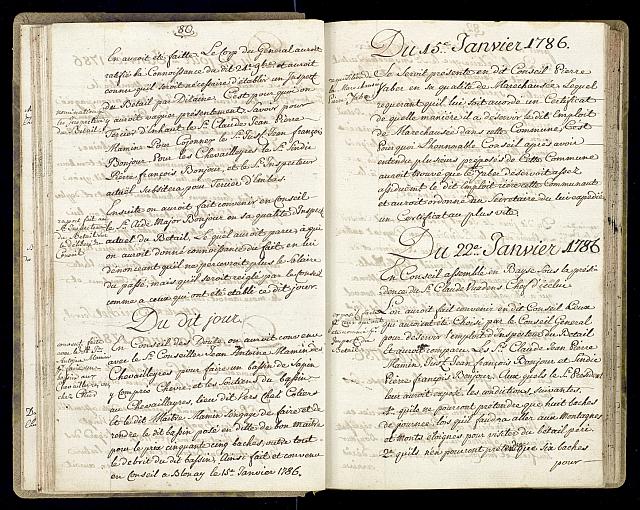 80.
En auroit été faitte. Le Corp du General auroit
ratifié la Connoissance du dit 21e 9bre et auroit
connu qu'il seroit nécessaire d'établir un Inspect
du Betail par Ditaine. C'est pourquoi on
y auroit vaquer présentement Savoir pour
Tercier d'Enhaut le Sr Claude Jean Pierre
Mamin. Pour Cojonnex le Sr Jost Jean François
Bonjour. Pour les Chevailleyres le Sr Jndie
Pierre François Bonjour, et le Sr Inspecteur
actuel Subsistera pour Tercier d'Enbas.
nomination
d'Inspecteurs
du Betail
Ensuite on auroit fait convenir en Conseil
le Sr Aide Major Bonjour en sa qualité d'Inspect
actuel du Betail. Le quel auroit paru à qui
on auroit donné connoissance du fait, en lui
dénoncant qu'il ne percevroit plus le Salaire
du passé, mais qu'il seroit reiglé par le Conseil
comme a ceux qui ont été établi ce dit jour.
raport fait au
Sr Inspecteur
du Betail
Conseil
Du dit jour.
En Conseil des Douze on auroit convenu
avec le Sr Conseiller Jean Antoine Mamin des
Chevailleyres pour faire un bassin de Sapin
y Compris Chevre et les Soutiens du bassin
au Chevailleyres, lieu dit Vers Chez Cotiers
et le dit Maître Mamin S'engage de faire et de
rendre le dit bassin posé en ditte de bon maître
pour le prix cinquante cinq baches, outre tout
le debrit du dit bassin. Ainsi fait et convenu
en Conseil a Blonay le 15e Janvier 1786.
convent. faite
avec le Sr
Antoine Mamin
Du 15e Janvier 1786.
Se Seroit présenté en dit Conseil Pierre
faber en sa qualité de Marechaussée, Lequel
requerant qu'il lui soit acordé un Certificat
de quelle manière il a desservit le dit Emploit
de Marechaussée dans cette Commune, C'est
Pourquoi l'honnorable Conseil après avoir
entendu plusieurs préposés de Cette Commune
auroit trouvé que le faber desservoit assez
assiduement le dit Emploit rière cette communauté
et auroit ordonné au Secretaire de lui expedier
un Certificat au plus vite.
Du 22e Janvier 1786
En Conseil assemblé en Bayse Sous la presi-
dence du Sr Claude Vuedens Chef d'Eclise
L'on auroit fait convenir en dit Conseil Ceux
qui auroient été Choisi par le Conseil General
pour desservir l'emploit d'Inspecteur du Betail
et auroit comparu Les Srs Claude Jean Pierre
Mamin, Jost Jean François Bonjour et Jndie
Pierre françois Bonjour. Aux quels le Sr President
leur auroit exposé les conditions suivantes.
1e qu'ils ne pourront pretendre que huit baches
de journée, lors qu'il faudra aller aux Montagnes
et Monts éloignés pour visiter du betail péri
2e qu'ils n'en pourront prétendre que Six baches
pour